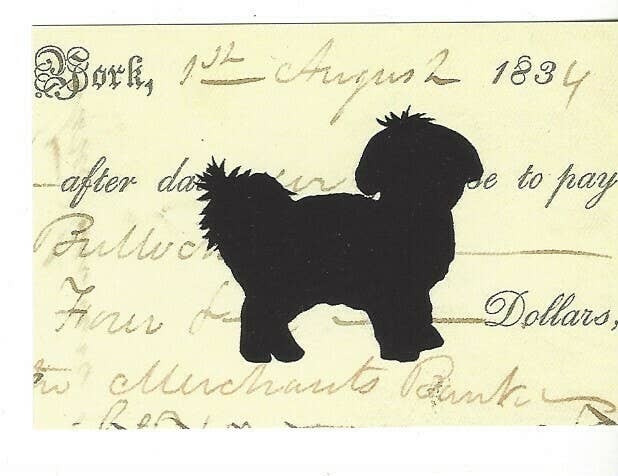 York, 1st August 1834
after da se to pay
Bulloch
Four Dollars,
Merchants Bank